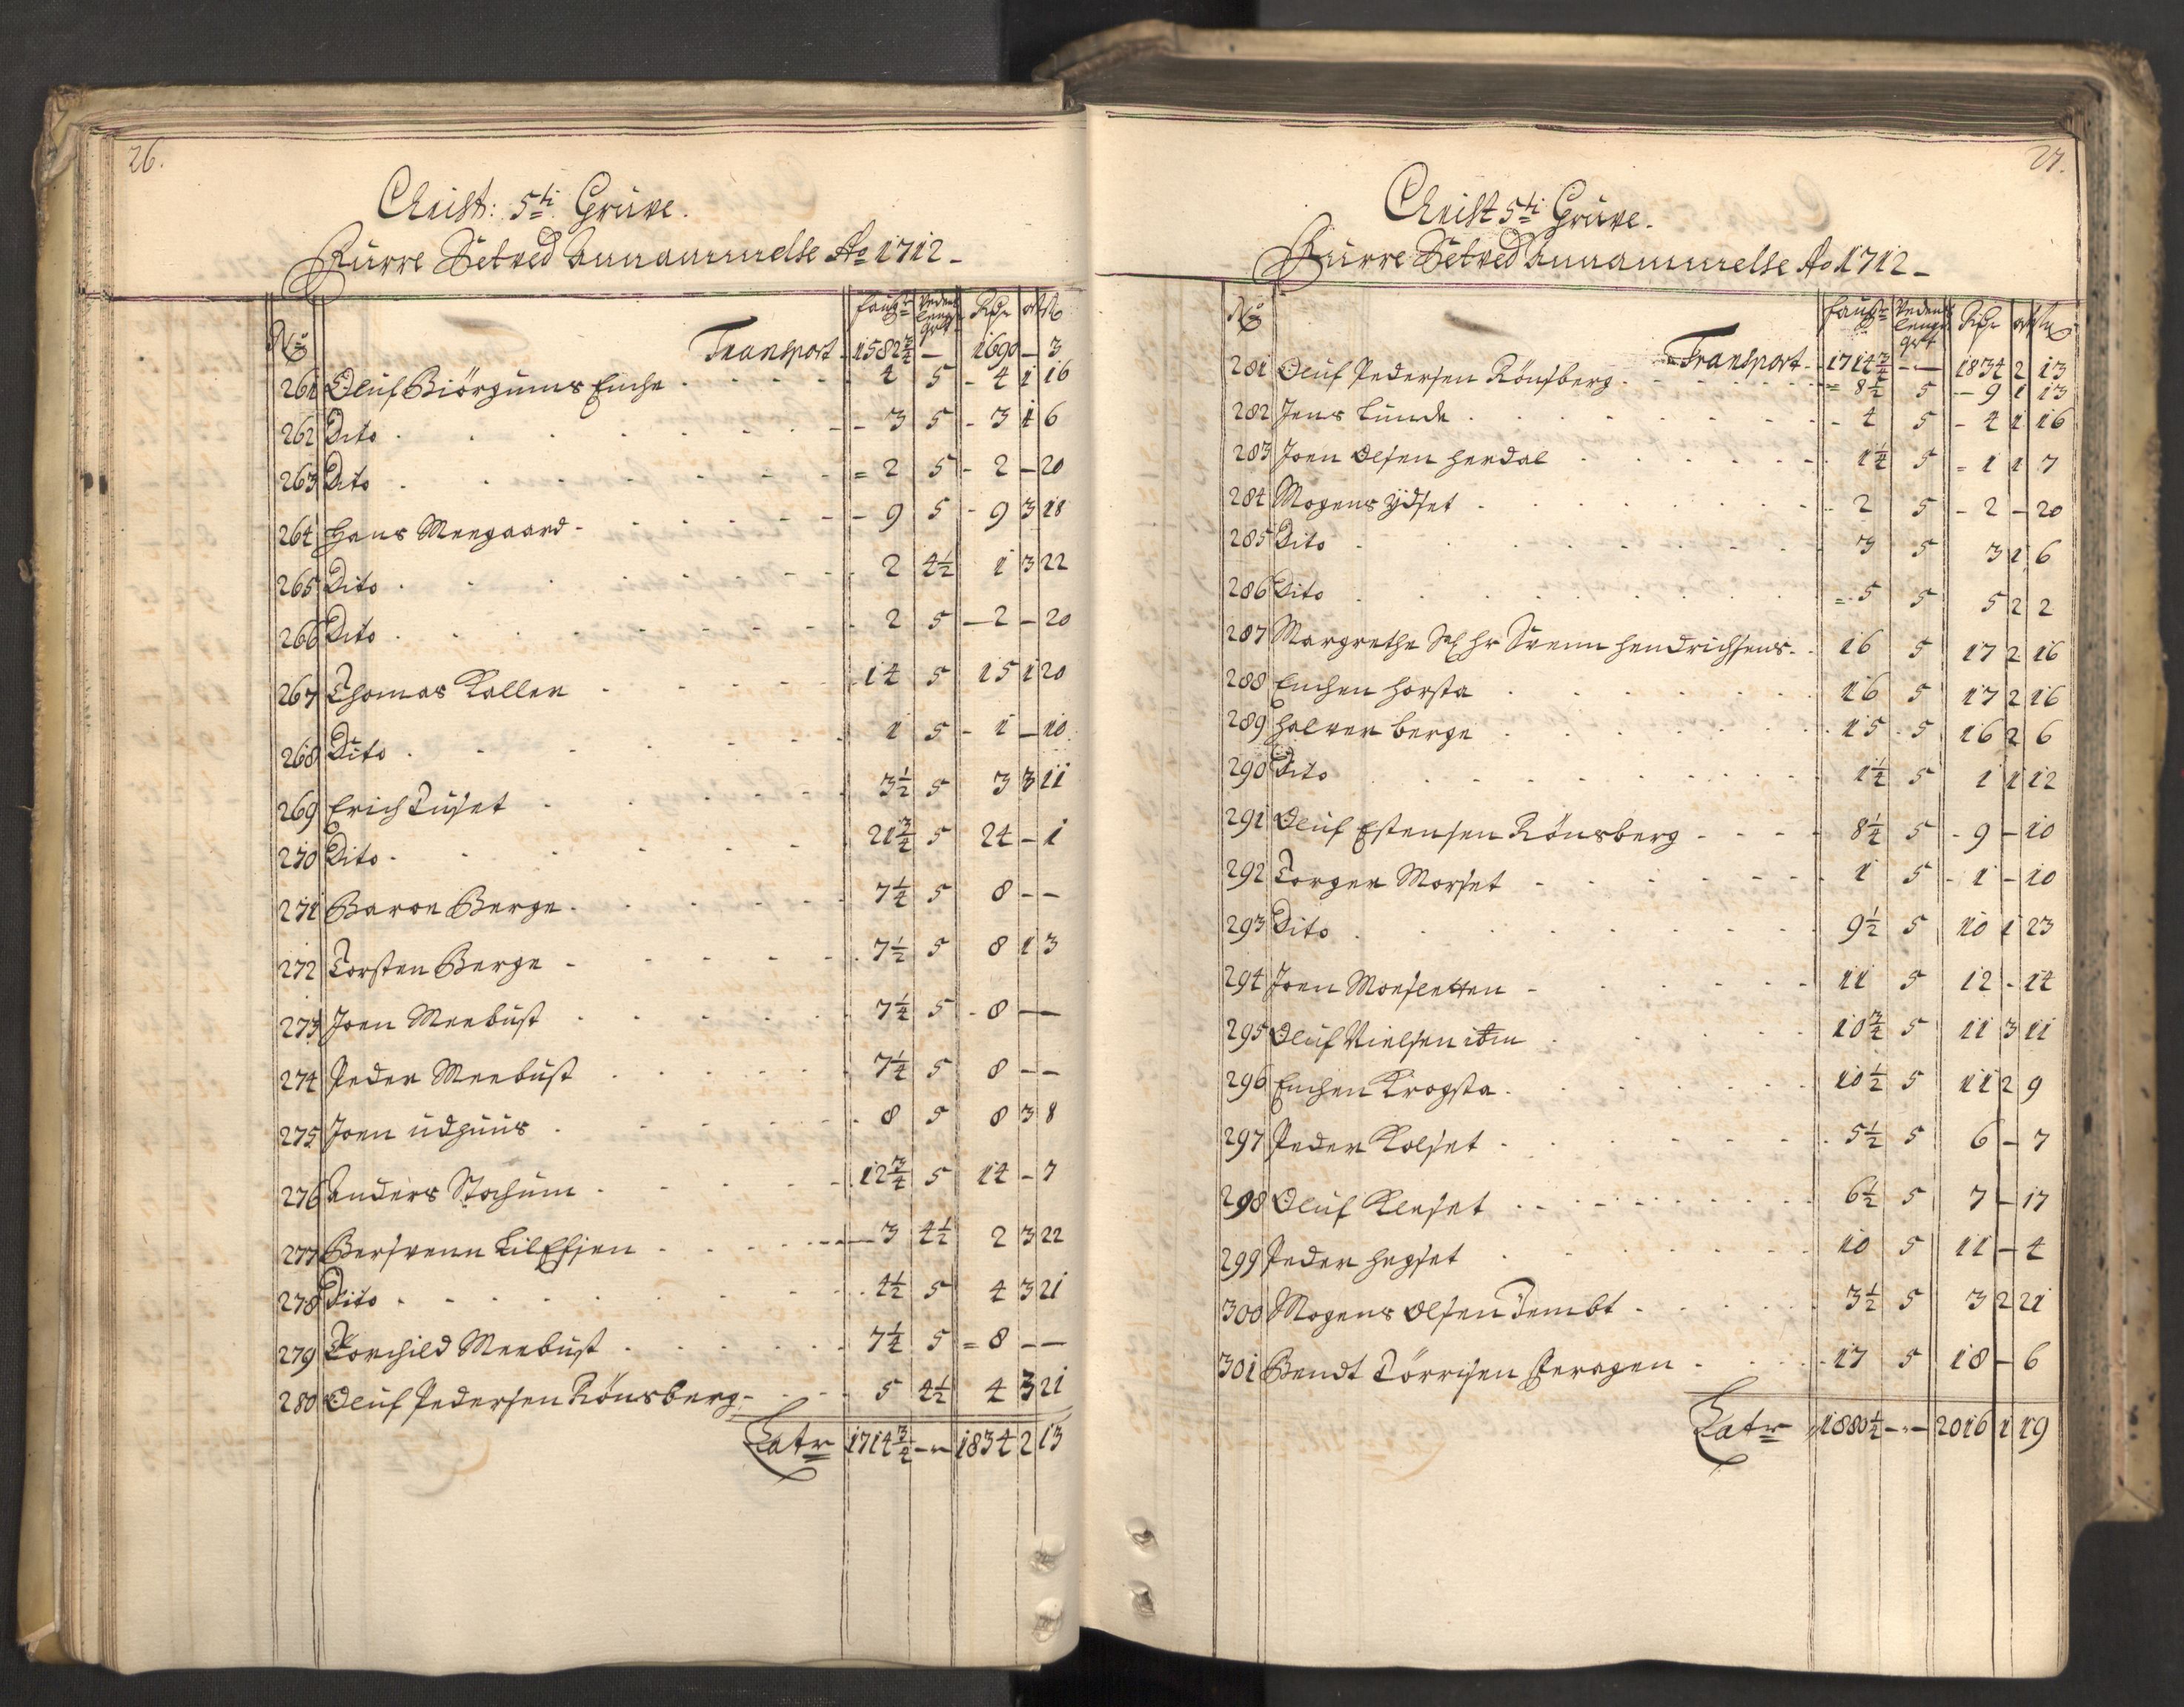 26.
Christ: 5ti Grüve.
Kürre Setved Annammelse Ao 1712 -
No | faufn | Vedens lengde qrt | Rdr | ort | s
Transport - 1582 3/4 - 1690 - 3
261 Oluf Biörgums Enche 4 5 - 4 1 16
262 Dito - 3 5 - 3 1 6
263 Dito = 2 5 - 2 - 20
264 Hans Meegaard - 9 5 - 9 3 18
265 Dito 2 4 1/2 1 3 22
266 Dito 2 5 - 2 - 20
267 Thomas Kallen 14 5 15 1 20
268 Dito 1 5 - 1 - 10
269 Erich Tüset 3 1/2 5 3 3 11
270 Dito 21 3/4 5 24 - 1
271 Baron Berge 7 1/4 5 8 - -
272 Torsten Berge 7 1/2 5 8 1 3
273 Joen Meebust 7 1/4 5 - 8 -
274 Peder Meebust 7 1/4 5 8 - -
275 Joen üdhuus 8 5 8 3 8
276 Anders Stochum 12 3/4 5 14 - 7
277 Bersvenn LilEfien 3 4 1/2 2 3 22
278 Dito 4 1/2 5 4 3 21
279 Torchild Meebust 7 1/4 5 = 8 - -
280 Oluf Pedersen Rönsberg 5 4 1/2 4 3 21
Latr 1714 3/4 - 1834 2 13
27.
Christ 5ti Grüve.
Kürre Setved Annammelse Ao 1712 -
No | faufn | Vedens lengde qrt | Rdr | ort | s
Transport - 1714 3/4 - 1834 2 13
281 Oluf Pedersen Rönsberg = 8 1/2 5 - 9 1 13
282 Jens Lunde - 4 5 - 4 1 16
283 Joen Olsen Herdal 1 1/4 5 = 1 1 7
284 Mogens ÿdset 2 5 - 2 - 20
285 Dito 3 5 3 1 6
286 Dito = 5 5 5 2 2
287 Margrethe Sl Hr Svenn Hendrichsens 16 5 17 2 16
288 Enchen Horsta 16 5 17 2 16
289 Halver Berge 15 5 16 2 6
290 Dito 1 1/4 5 1 1 12
291 Oluf Estensen Rönsberg 8 1/4 5 - 9 - 10
292 Torger Morset 1 5 - 1 - 10
293 Dito 9 1/2 5 10 1 23
294 Joen Moesletten 11 5 12 - 14
295 Oluf Nielsen ibm 10 3/4 5 11 3 11
296 Enchen Krogsta 10 1/2 5 11 2 9
297 Peder Kolset 5 1/2 5 6 - 7
298 Oluf Kleset 6 1/2 5 7 - 17
299 Peder Hegset 10 5 11 - 4
300 Mogens Olsen Tembt 3 1/2 5 3 2 21
301 Bendt Törrisen Peragen 17 5 18 - 6
Latr 1880 1/2 - 2016 1 19